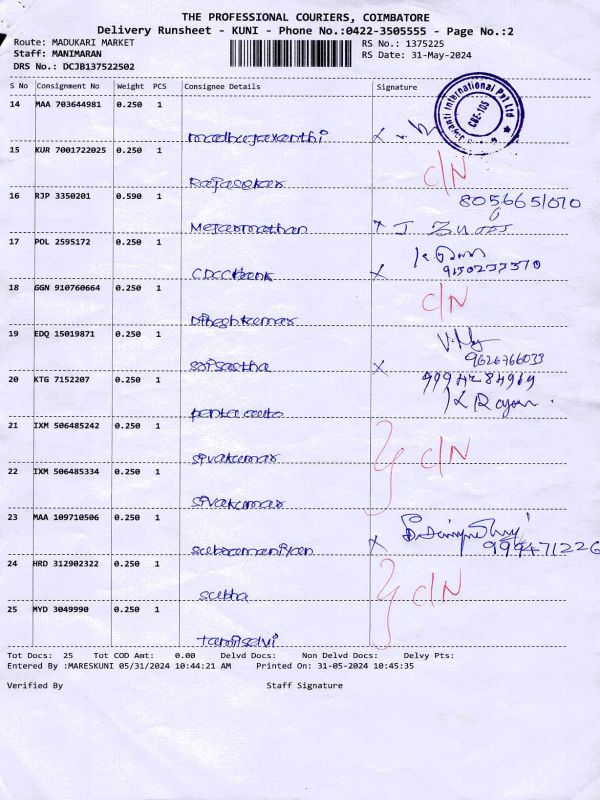 THE PROFESSIONAL COURIERS, COIMBATORE
Delivery Runsheet - KUNI - Phone No.:0422-3505555 - Page No.:2
Route: MADUKARI MARKET RS No.: 1375225
Staff: MANIMARAN RS Date: 31-May-2024
DRS No.: DCJB137522502
S No Consignment No Weight PCS Consignee Details Signature
14 MAA 703644981 0.250 1
CBE-105
15 KUR 7001722025 0.250 1 C/N
Rajasekar
16 RJP 3350201 0.590 1 8056651070
17 POL 2595172 0.250 1
CDCC Bank 9150237370
18 GGN 910760664 0.250 1 C/N
Dineshkumar
19 EDQ 15019871 0.250 1
9626766033
20 KTG 7152207 0.250 1
penta auto
21 IXM 506485242 0.250 1
Sivakumar C/N
22 IXM 506485334 0.250 1
Sivakumar
23 MAA 109710506 0.250 1
subramaniyan 999471226
24 HRD 312902322 0.250 1
subha C/N
25 MYD 3049990 0.250 1
tamilselvi
Tot Docs: 25 Tot COD Amt: 0.00 Delvd Docs: Non Delvd Docs: Delvy Pts:
Entered By :MARESKUNI 05/31/2024 10:44:21 AM Printed On: 31-05-2024 10:45:35
Verified By Staff Signature